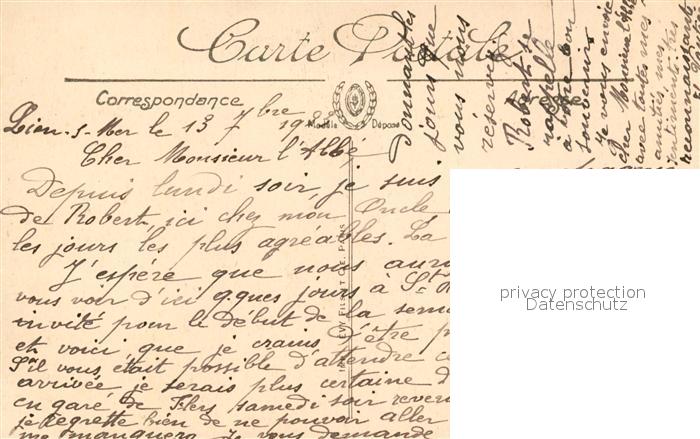 Carte Postale
Correspondance
Adresse
Modèle Déposé
Lion-s-Mer le 13 7bre 19
Cher Monsieur l'Abbé
Depuis lundi soir, je suis
de Robert, ici chez mon Oncle
les jours les plus agréables. La
J'espère que nous
vous voir d'ici qques jours à St
invité pour le début de la
et voici que je crains d'être
S'il vous était possible d'attendre
arrivée je serais plus certaine
en gare de Flers samedi soir
je regrette bien de ne pouvoir aller
me manquera. Je vous demande
jours que
vous nous
réservez.
Robert se
rappelle
à votre bon
souvenir.
Je vous envoie
cher Monsieur l'Abbé
avec toutes mes
amitiés, mes
sentiments très
reconnaissants.
LÉVY FILS ET CIE, PARIS
privacy protection
Datenschutz